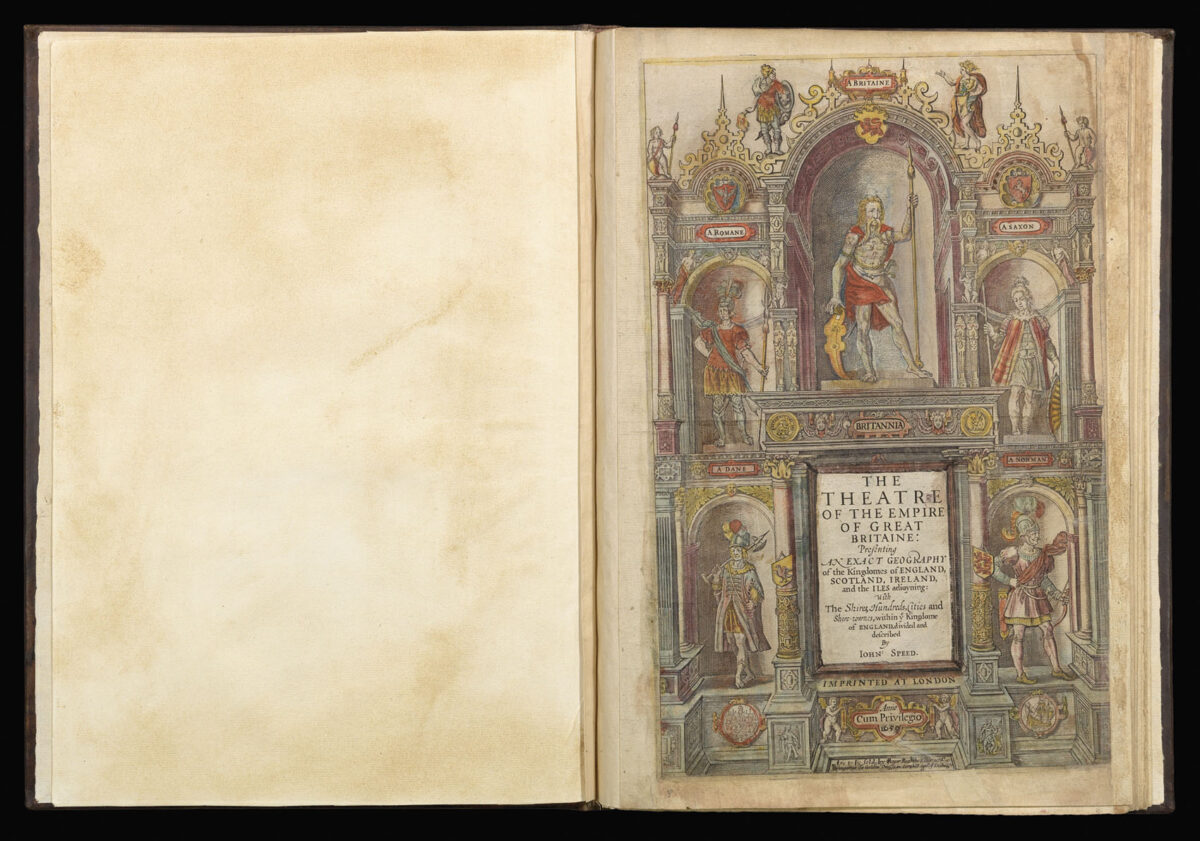 A BRITAINE
A ROMANE
A SAXON
BRITANNIA
A DANE
A NORMAN
THE
THEATRE
OF THE EMPIRE
OF GREAT
BRITAINE:
Presenting
AN EXACT GEOGRAPHY
of the Kingdomes of ENGLAND,
SCOTLAND, IRELAND,
and the ILES adioyning:
With
The Shires, Hundreds, Cities and
Shire-townes, within ẙ Kingdome
of ENGLAND, divided and
described
By
IOHN SPEED.
IMPRINTED AT LONDON
Anno
Cum Privilegio